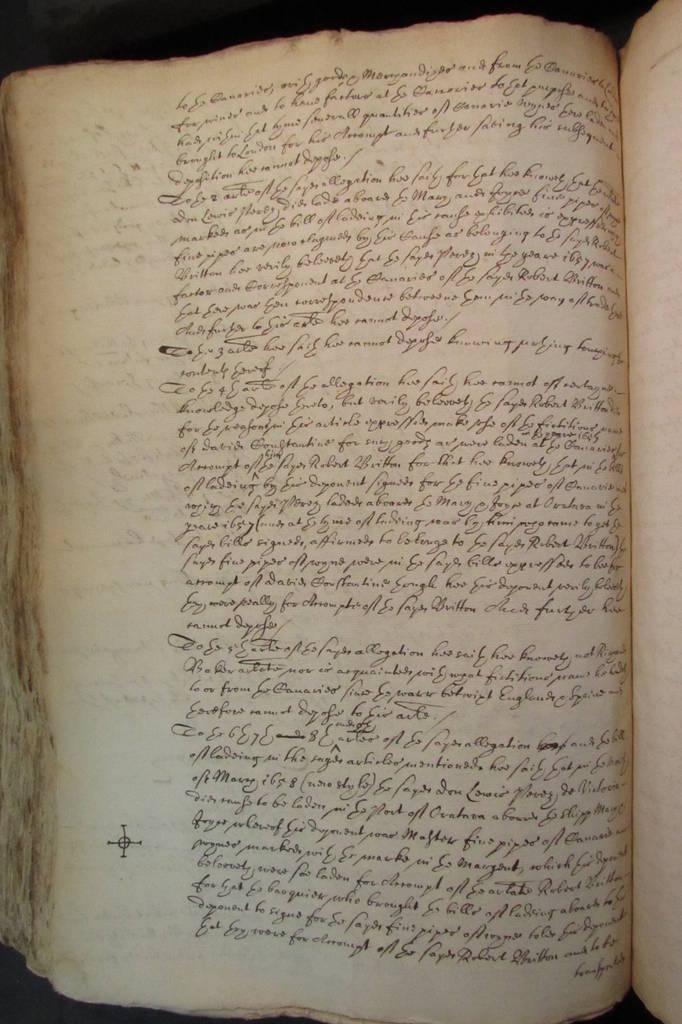 to the Canaries, with goods & Merchandizes and from the Canaries
for wines and to have factors at the Canaries to that purpose and
hath within that tyme severall quantities of Canarie wynes there laden
brought to London for his Accompt and further saving his subsequent
deposition hee cannot depose./
To the 2 arte of the sayd allegation hee saith for that hee knoweth that the
don Lewis Perez did lade aboard the Mary and Joyce five pipes
marked as in the bill of lading in this cause exhibited is expressed
five pipes are now claymed by this Cause as belonging to the sayd Robert
Britton hee verily beleeveth that the sayd Perez in the yeare 1657 was
factor and Correspondent at the Canaries of the sayd Robert Britton and
that there was then correspondence betweene them in the way of trade
And further to this arte hee cannot depose./
To the 3 arte hee saith hee cannot depose knowing nothing touching the
contents thereof./
To the 4th arte of the allegation hee saith hee cannot of certayne
knowledge depose thereto, but verily beleeveth the sayd Robert Britton did
for the reasons in this article expressed make use of the fictitious name
of david Constantine for such goods as were laden at the Canaries for
in the yeare 1657
Accompt of the sayd Robert Britton for that hee knoweth that in the bills
of lading by this deponent signed for the five pipes of Canarie
him
wynes the sayd Perez laded aboard the Mary & Joyce at Oratava in the
yeare 1657 (and at the tyme of lading was by him who came to get the
sayd bills signed, affirmed to belonge to the sayd Robert Britton) the
sayd five pipes of wyne were in the sayd bills expressed to bee for
accompt of david Constantine though hee this deponent verily beleeveth
they were really for Accompt of the sayd Britton And further hee
cannot depose/
To the 5th arte of the sayd allegation hee saith hee knoweth not
Baker arlate nor is acquainted with what fictitious name hee traded
to or from the Canaries since the warr betwixt England & Spaine and
therefore cannot depose to this arte./
To the 6th 7th 8th artes of the sayd allegation and the bill
of lading in the sayd articles mentioned hee saith that in the
of March 1658 (new style) the sayd don Lewis Perez de Victoria
did cause to be laden in the Port of Oratava aboard the shipp Mary &
Joyce whereof this deponent was Master five pipes of Canarie
wynes marked with the marke in the Margent, which this deponent
beleeveth were soe laden for Accompt of the arlate Robert Britton
for that the barquier who brought the bills of lading aboard to this
deponent to signe for the sayd five pipes of wynes told this deponent
that they were for Accompt of the sayd Robert Britton and to be
transported